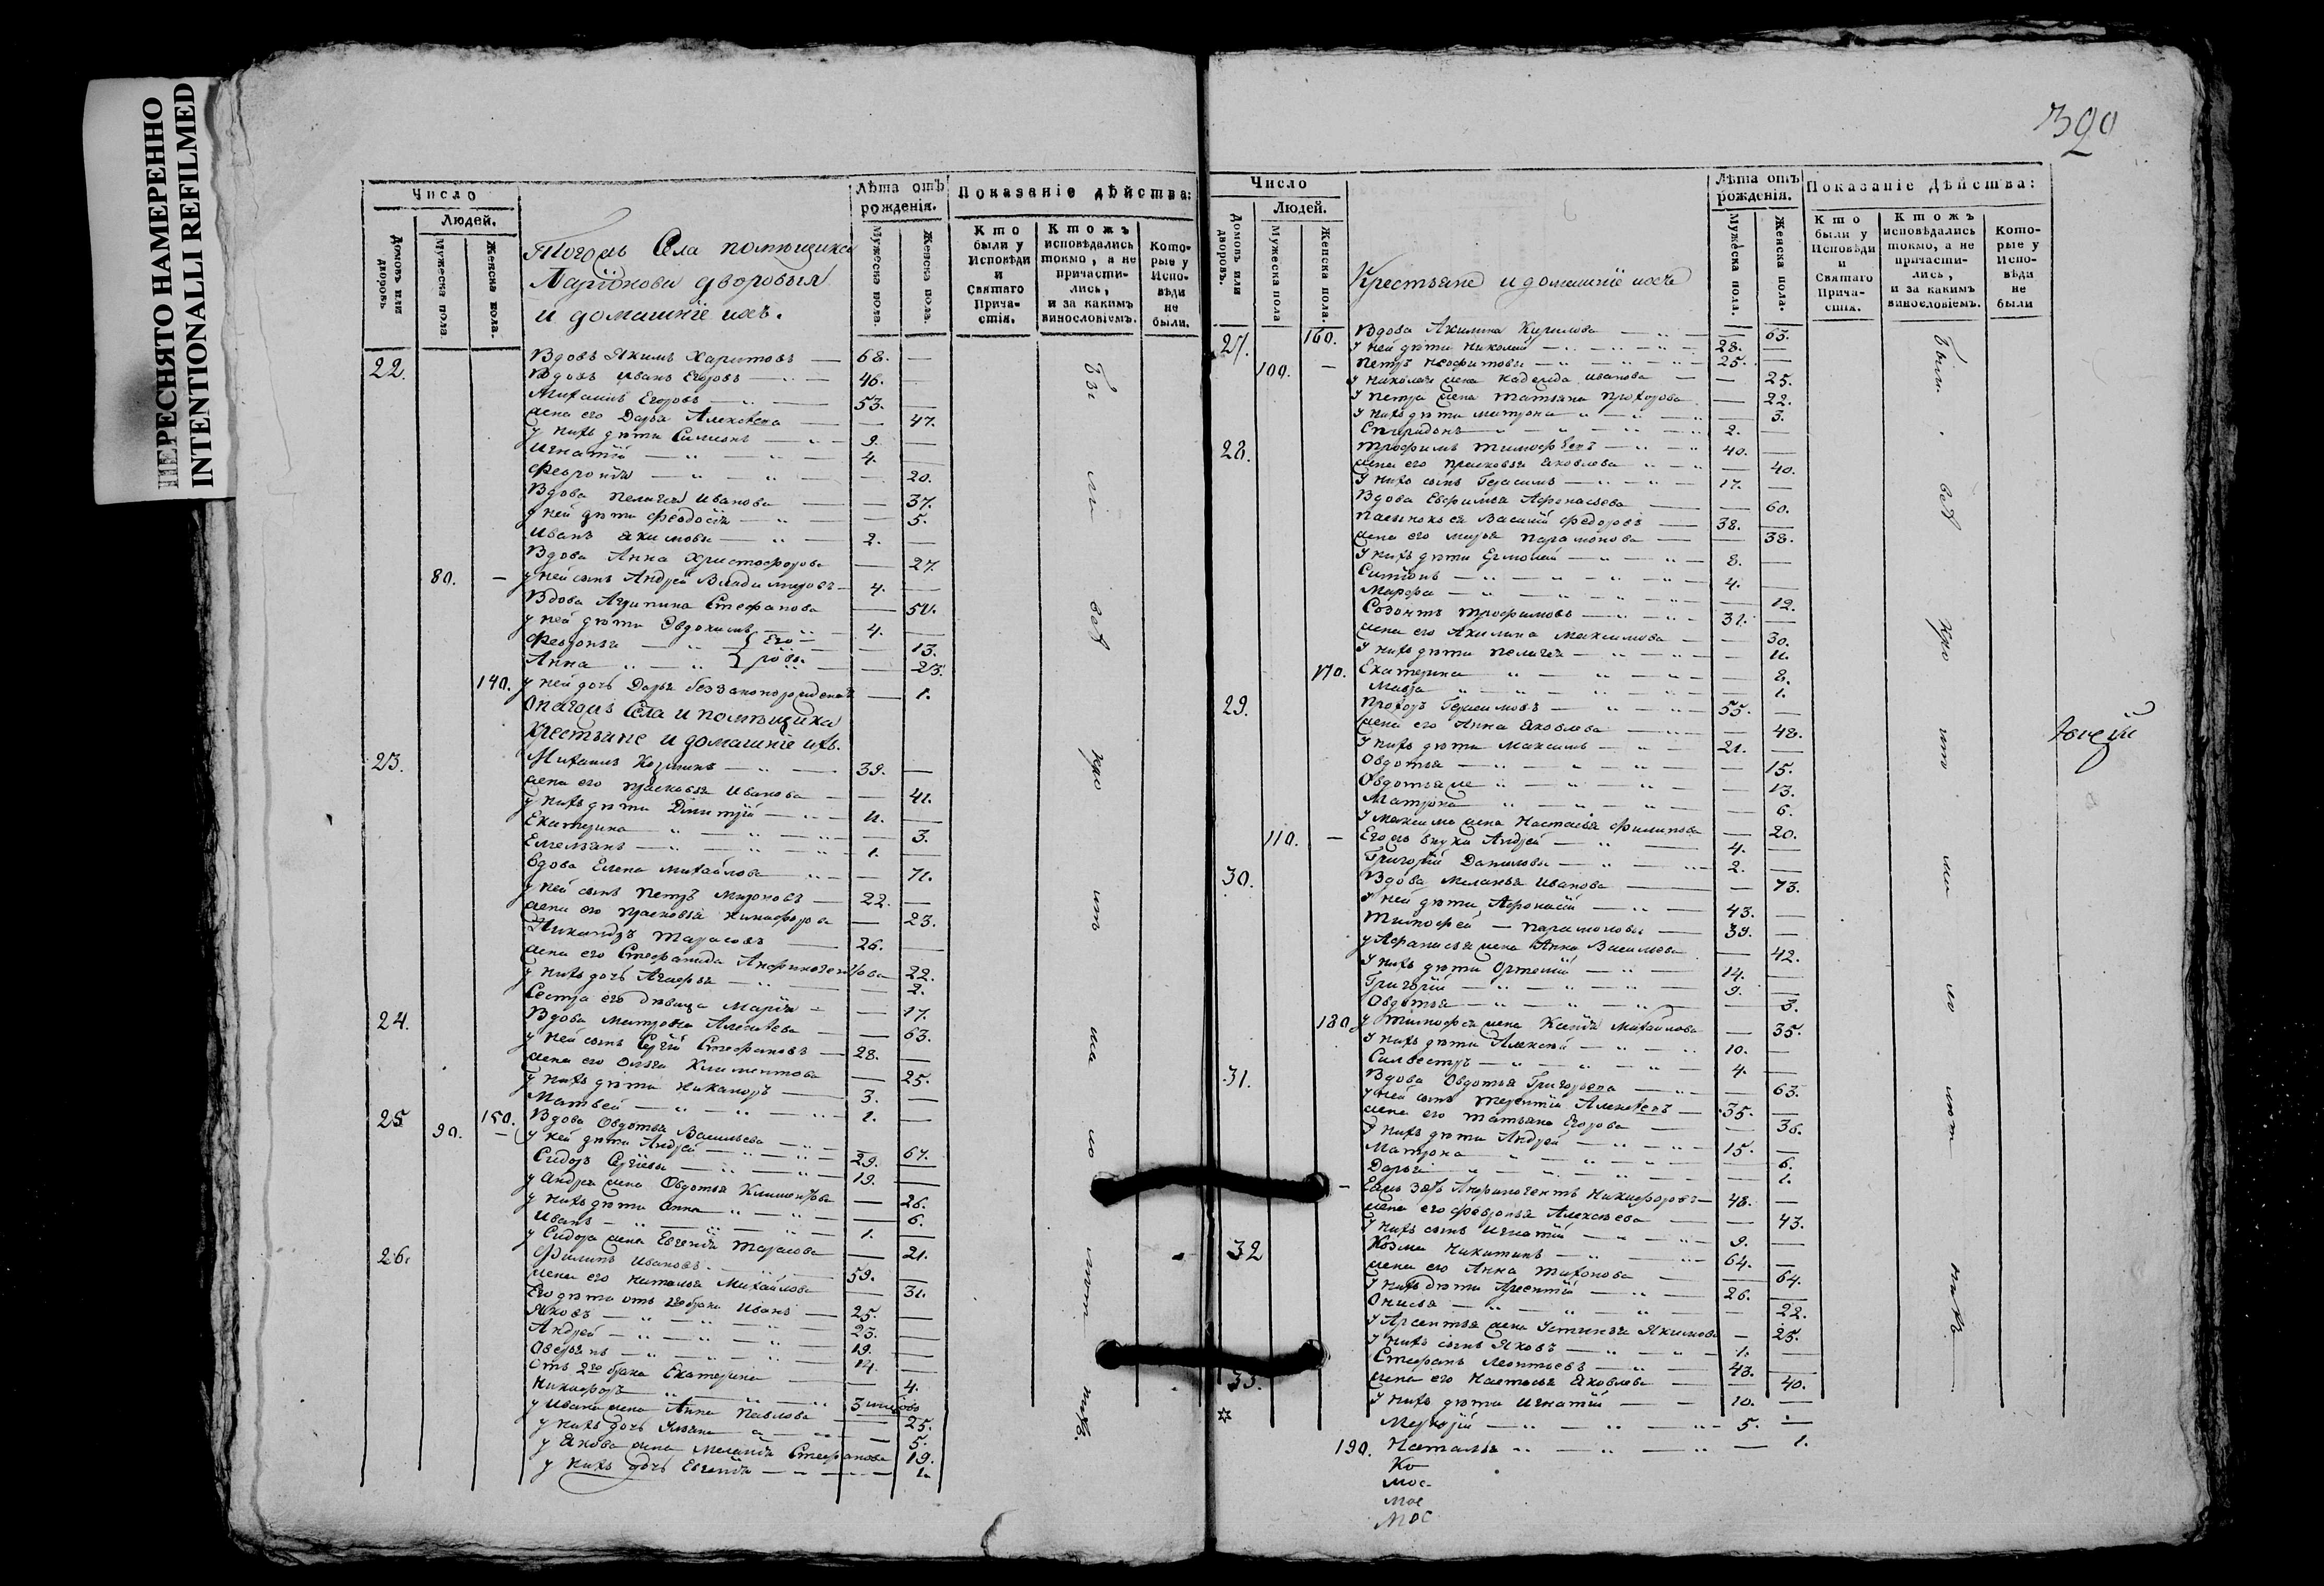 ПЕРЕСНЯТО НАМЕРЕННО
INTENTIONALLI REFILMED
Число
Людей.
Домовъ или дворовъ
Мужеска пола
Женска пола.
Тогожъ Села помѣщика
Ларіонова дворовыя
и домашнїе ихъ.
Лѣта отъ рожденія.
Мужеска пола.
Женска пола.
Показаніе дѣйства:
Кто были у Исповѣди и Святаго Причастія.
Ктожъ исповѣдались токмо, а не причастились, и за какимъ винословіемъ.
Которые у Исповѣди не были.
22. Вдовъ Якимъ Харитовъ 68. —
Вдовъ Иванъ Егоровъ 46. —
Михаилъ Егоровъ 53. —
жена его Дарья Алексѣева — 47.
у нихъ дѣти Симионъ 9. —
Игнатїй 4. —
Феврония — 20.
Вдова Пелагея Иванова — 37.
у ней дѣти Феодосїя — 5.
Иванъ Якимовы 2. —
Вдова Анна Христофорова — 27.
80. — у ней сынъ Андрей Владимировъ 4. —
Вдова Агрипина Стефанова — 50.
у ней дѣти Эвдокимъ 4. —
Февронья — 13.
Анна — 23.
140. у ней дочь Дарья беззаконорожденая — 1.
Онагожъ Села и помѣщика
Крестьяне и домашнїе ихъ.
23. Михаилъ Козминъ 39. —
жена его Прасковья Иванова — 41.
у нихъ дѣти Димитрїй 11. —
Екатерина — 3.
Емельянъ 1. —
Вдова Елена Михайлова — 71.
у ней сынъ Петръ Мироновъ 22. —
жена его Прасковья Никифорова — 23.
Никандръ Тарасовъ 26. —
жена его Стефанида Анфиногентова — 22.
у нихъ дочь Агафья — 2.
Сестра его дѣвица Марїя — 17.
24. Вдова Матрона Алексѣева — 63.
у ней сынъ Сергїй Стефановъ 28. —
жена его Ольга Климентова — 25.
у нихъ дѣти Никаноръ 3. —
Матвей 1. —
25 90. 150. Вдова Овдотья Васильева — 67.
у ней дѣти Андрей 29. —
Сидоръ Сергїевы 19. —
у Андрея жена Овдотья Климентова — 26.
у нихъ дѣти Анна — 6.
Иванъ 1. —
у Сидора жена Евгенїя Тарасова — 21.
26. Филипъ Ивановъ 59. —
жена его Наталья Михайлова — 31.
Его дѣти отъ 1го брака Иванъ 25. —
Яковъ 23. —
Андрей 19. —
Оверьянъ 14. —
Отъ 2го брака Екатерина — 4.
Никифоръ 3
у Ивана жена Анна Павлова — 25.
у нихъ дочь Ульяна — 5.
у Якова жена Меланїя Стефанова — 19.
у нихъ дочь Евгенїя — 1.
Бы ли всѣ
320
Число
Людей.
Домовъ или дворовъ.
Мужеска пола
Женска пола.
Крестьяне и домашнїе ихъ
Лѣта отъ рожденія.
Мужеска пола.
Женска пола.
Показаніе Дѣйства:
Кто были у Исповѣди и Святаго Причастія.
Ктожъ исповѣдались токмо, а не причастились, и за какимъ винословіемъ.
Которые у Исповѣди не были
27. 160. Вдова Акилина Кирилова — 63.
у ней дѣти Николай 28. —
100. — Петръ Неофитовы 25. —
у Николая жена Надежда Иванова — 25.
у Петра жена Татьяна Прохорова — 22.
у нихъ дѣти Матрона — 3.
Спиридонъ 2. —
28. Трофимъ Тимофѣевъ 40. —
жена его Прасковья Яковлева — 40.
у нихъ сынъ Герасимъ 17. —
Вдова Евфимья Афонасьева — 60.
Пасынокъ ея Василїй Федоровъ 38. —
жена его Марья Парамонова — 38.
у нихъ дѣти Ермолай 8. —
Симїонъ 4. —
Марфа — 12.
Созонтъ Трофимовъ 31. —
жена его Акилина Максимова — 30.
у нихъ дѣти Пелагея — 11.
170. Екатерина — 8.
Мавра — 1.
29. Прохоръ Герасимовъ 55. —
жена его Анна Яковлева — 48.
у нихъ дѣти Максимъ 21. —
Овдотья — 15.
Овдотья же — 13.
Матрона — 6.
у Максима жена Настасья Филипова — 20.
110. — Егожъ внуки Андрей 4. —
Григорїй Даниловы 2. —
30. Вдова Меланья Иванова — 73.
у ней дѣти Афонасїй 43. —
Тимофей Парамоновы 39. —
у Афанасья жена Анна Васильева — 42.
у нихъ дѣти Ортемїй 14. —
Григорїй 9. —
Овдотья — 3.
180 у Тимофея жена Ксенїя Михайлова — 35.
у нихъ дѣти Алексѣй 10. —
Силвестръ 4. —
31. Вдова Овдотья Григорьева — 63.
у ней сынъ Терентїй Алексѣевъ 35. —
жена его Татьяна Егорова — 36.
у нихъ дѣти Андрей 15. —
Матрона — 6.
Дарья — 1.
— Ея зять Анфиногентъ Никифоровъ 48. —
жена его Февронья Алексѣева — 43.
у нихъ сынъ Игнатїй 9. —
32 Козма Никитинъ 64. —
жена его Анна Тихонова — 64.
у нихъ дѣти Арсентїй 26. —
Онисья — 22.
у Арсентья жена Устинья Якимова — 25.
у нихъ сынъ Яковъ 1. —
33. Стефанъ Леонтьевъ 43. —
жена его Настасья Яковлева — 40.
у нихъ дѣти Игнатїй 10. —
Меркурїй 5. —
190. Наталья — 1.
Ко
Мос
Мос
Мос
Были всѣ